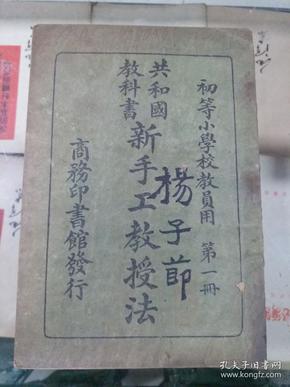 初等小學校教員用 第一冊
共和國
教科書
新手工教授法
楊子節
商務印書館發行
孔夫子旧书网